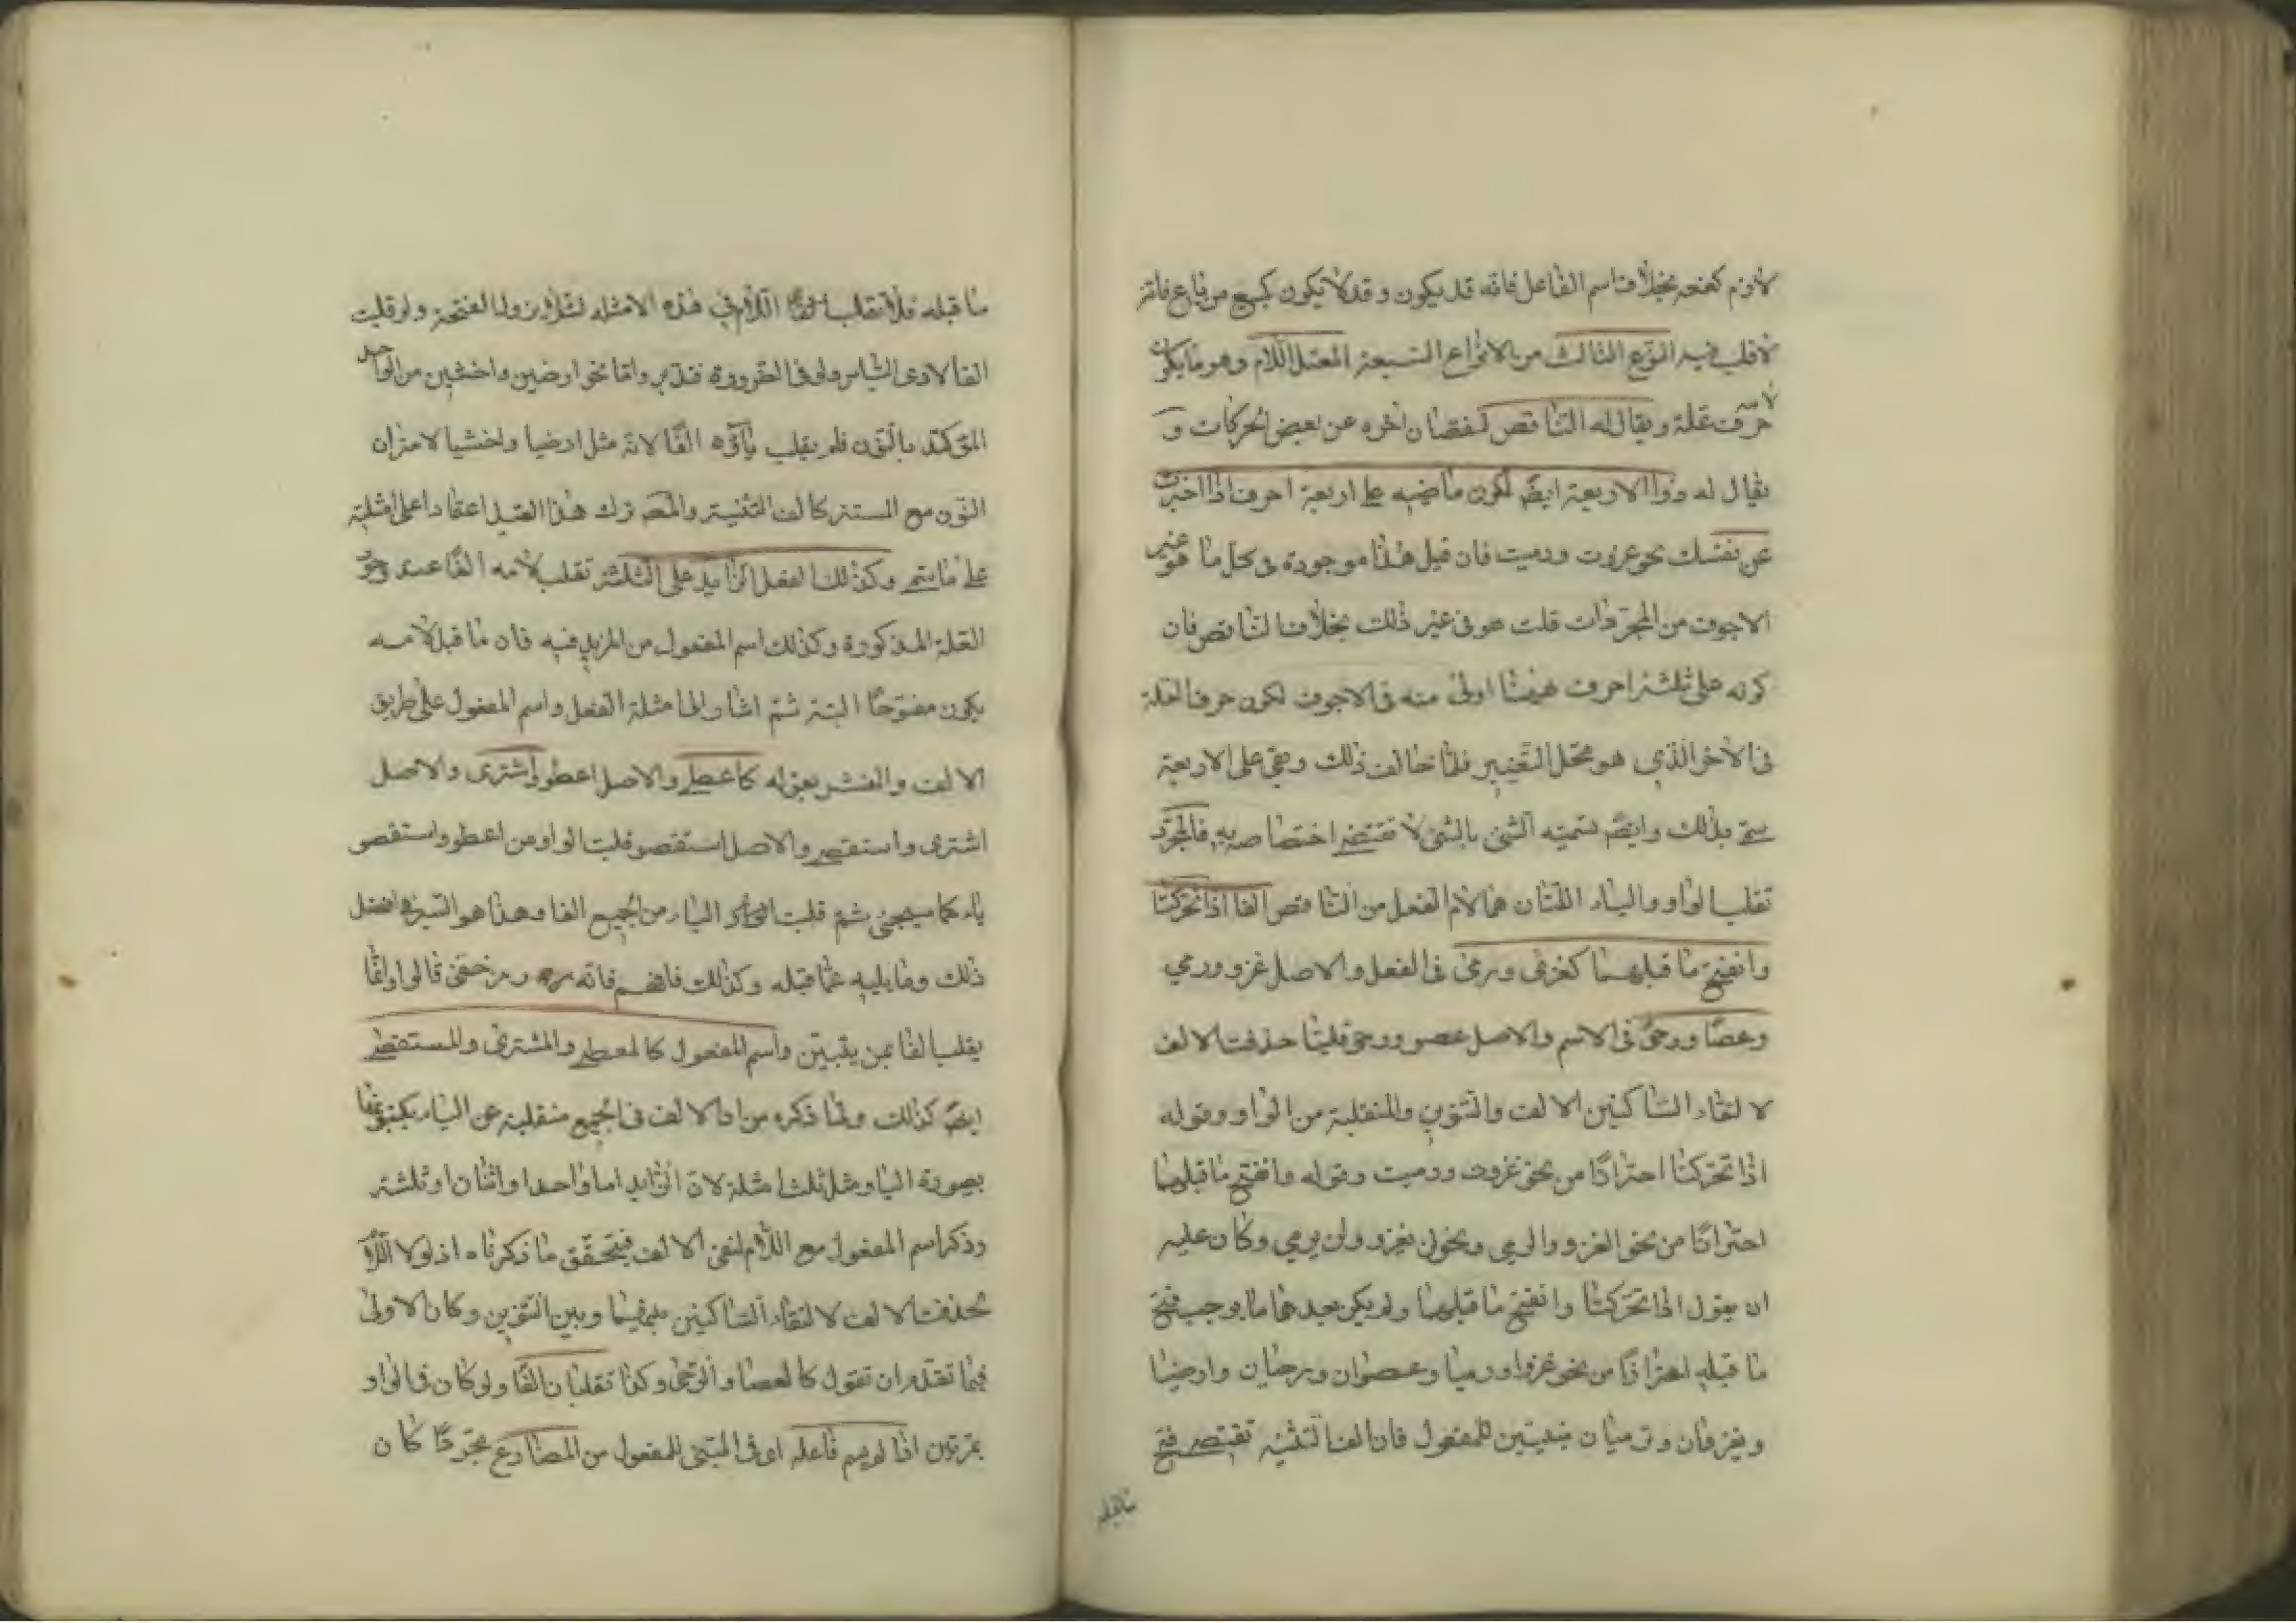 لازم كفتحه بخلاف اسم الفاعل فانه قد يكون وقد لا يكون كبيع من باع فانه
لا قلب فيه النوع الثالث من الانواع السبعة المعتل اللام وهو ما يكون
لامه حرف علة ويقال له الناقص لنقصان اخره عن بعض الحركات و
يقال له ذوا الاربعة ايضً لكون ماضيه على اربعة احرف اذا اخبرت
عن نفسك نحو غزوت ورميت فان قيل هذا موجودة فى كل ما هو غير
الاجوف من المجردات قلت هو فى غير ذلك بخلاف الناقص فان
كونه على ثلثة احرف ههنا اولى منه فى الاجوف لكون حرف العلة
فى الاخر الذي هو محل التغيير فلما خالف ذلك وبقى على الاربعة
سمى بذلك وايضً تسميته الشئ بالشئ لا تقتضى اختصاصه به فالمجرد
تقلب الواو والياء اللتان هما لام الفعل من الناقص الفا اذا تحركتا
وانفتح ما قبلهما كغزى ورمى فى الفعل والاصل غزو ورمي
وعصًا ورحىً فى الاسم والاصل عصو ورحى قلبتا حذفت الالف
لالتقاء الساكنين الالف والتنوين والمنقلبة من الواو وقوله
اذا تحركتا احترازًا من نحو غزوت ورميت وقوله وانفتح ما قبلهما
احترازًا من نحو الغزو والرمي ونحو لن يغزو ولن يرمي وكان عليه
ان يقول اذا تحركتا وانفتح ما قبلهما ولم يكن بعدهما ما يوجب فتح
ما قبله احترازًا من نحو غزوا ورميا وعصوان ورحيان وارضيا
ويغزوان وترميان مبنيتين للمفعول فان الف التثنية تقتضى فتح
ما قبله
ما قبله فلا تقلب الفا اللام فى هذه الامثلة لئلا يزول الفتحة ولو قلبت
الفا لادى الى الثباس ولى فى الضرورة فتدبر واما نحو ارضين واخشين من الواحد
المؤكد بالنون فلم يقلب ياؤه الفًا لانه مثل ارضيا واخشيا لامر ان
النون مع المستتر كالف التثنية والمص ترك هذا القيد اعتمادا على امثلته
على ما سيجئ وكذلك الفعل الزايد على الثلثة تقلب لامه الفًا عند وجود
العلة المذكورة وكذلك اسم المفعول من المزيد فيه فان ما قبل لامه
يكون مفتوحًا البتة ثم اشار الى امثلة الفعل واسم المفعول على طريق
الالف والنشر بقوله كاعطى والاصل اعطو واشترى والاصل
اشترى واستقصى والاصل استقصو قلبت الواو من اعطو واستقصو
ياء كما سيجئ ثم قلبت الياء من الجميع الفا وهذا هو السر فى فصل
ذلك وما يليه عما قبله وكذلك فافهم فانه رمز خفى قالوا وانما
يقلب الفا بمن يتبين واسم المفعول كالمعطى والمشترى والمستقصى
ايضً كذلك ولما ذكره من ان الالف فى الجميع منقلبة عن الياء يكتبونها
بصورة اليا ومثل ثلث امثلة لان الزايد اما واحد او اثنان او ثلثة
وذكر اسم المفعول مع اللام لتبقى الالف فيتحقق ما ذكرناه اذ لولا اللام
لحذفت الالف لالتقاء الساكنين بينها وبين التنوين وكان الاولى
فيما تقدم ان تقول كالعصا والرحى وكذا تقلبان الفًا ولو كان فى الواو
بمرتين اذا لم يسم فاعله اى فى المبنى للمفعول من المضارع مجردًا كان